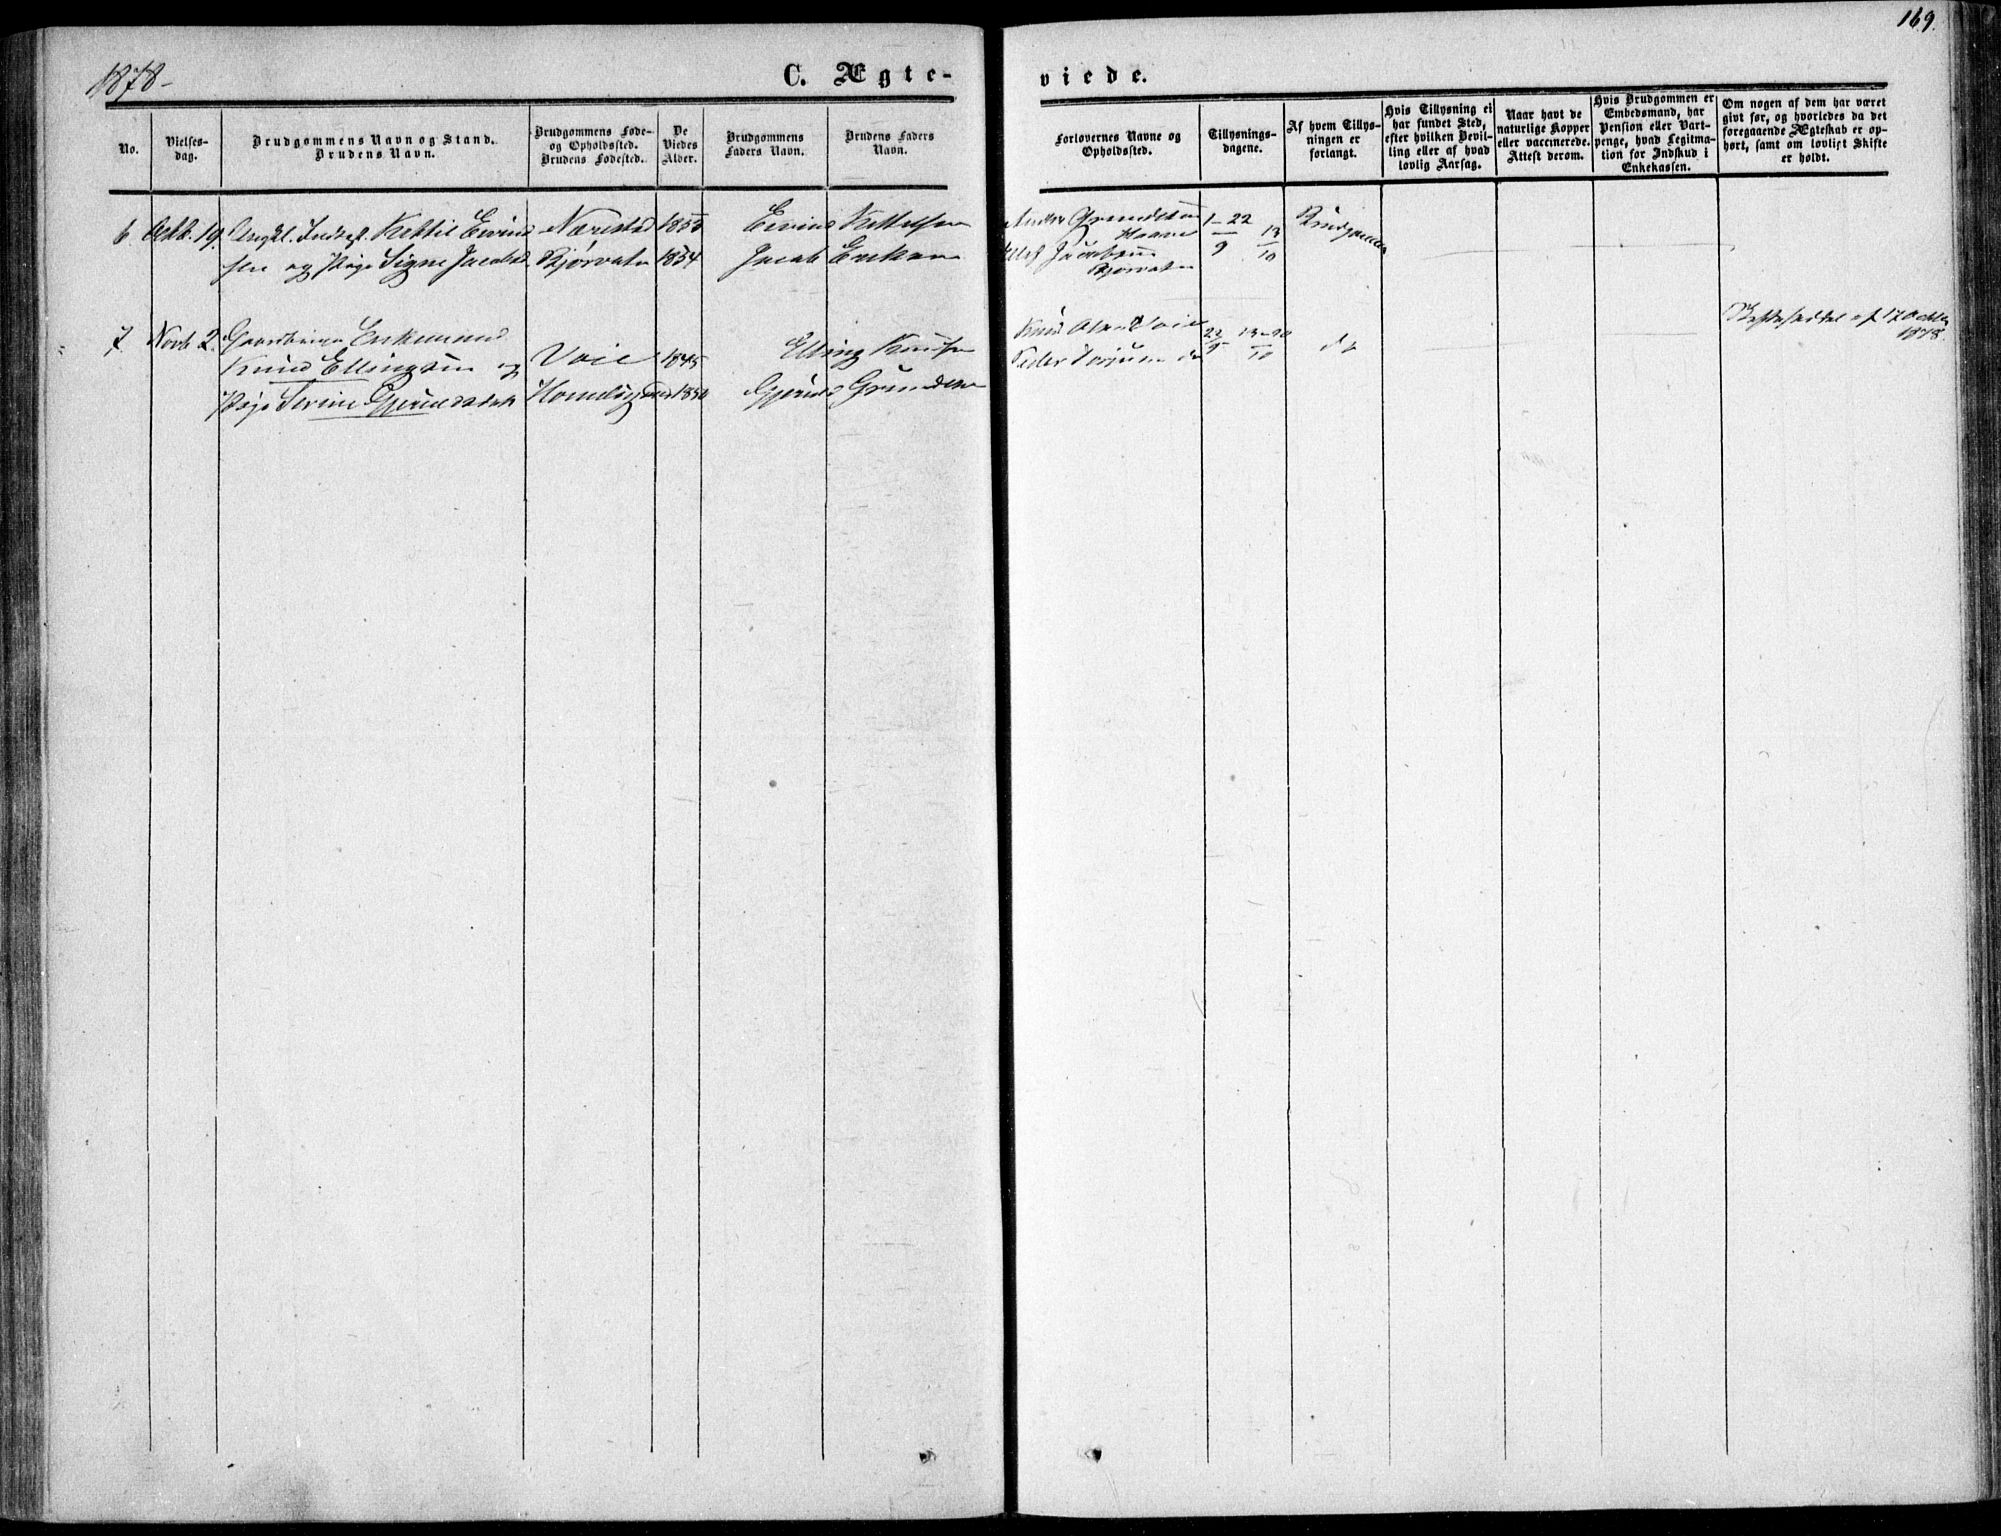 169.
1878-
C. Ægte-
viede.
No.
Vielses-
dag.
Brudgommens Navn og Stand.
Brudens Navn.
Brudgommens Føde-
og Opholdssted.
Brudens Fødested.
De
Viedes
Alder.
Brudgommens
Faders Navn.
Brudens Faders
Navn.
Forlovernes Navne og
Opholdssted.
Tillysnings-
dagene.
Af hvem Tillys-
ningen er
forlangt.
Hvis Tillysning ei
har fundet Sted,
efter hvilken Bevil-
ling eller af hvad
lovlig Aarsag.
Naar havt de
naturlige Kopper
eller vaccinerede.
Attest derom.
Hvis Brudgommen er
Embedsmand, har
Pension eller Vart-
penge, hvad Legitma-
tion for Indskud i
Enkekassen.
Om nogen af dem har været
givt før, og hvorledes da det
foregaaende Ægteskab er op-
hørt, samt om lovligt Skifte
er holdt.
6 Octb. 19. Ungkl. Inderst. Kettil Eivind
sen og Pige Signe Jacobsd.
Nærestad
Bjørvatn
1853
1854
Eivind Kettelsen
Jacob Eriksen
Grundesen
Haave
Jacobsen
Bjorvatn
1-22
9
13
10
Brudgommen
7 Novb 2. Gaardbruger Enkemand
Knud Ellingsen og
Pige Serine Gjerulsdatt
Voie
1845
1850
Elling Knutsen
Gjeruls Grundesen
Knud Olsen Voie
Peder Torjusen do
22
9
13-20
10
do
Skiftesseddel af 17 Octbr
1878.